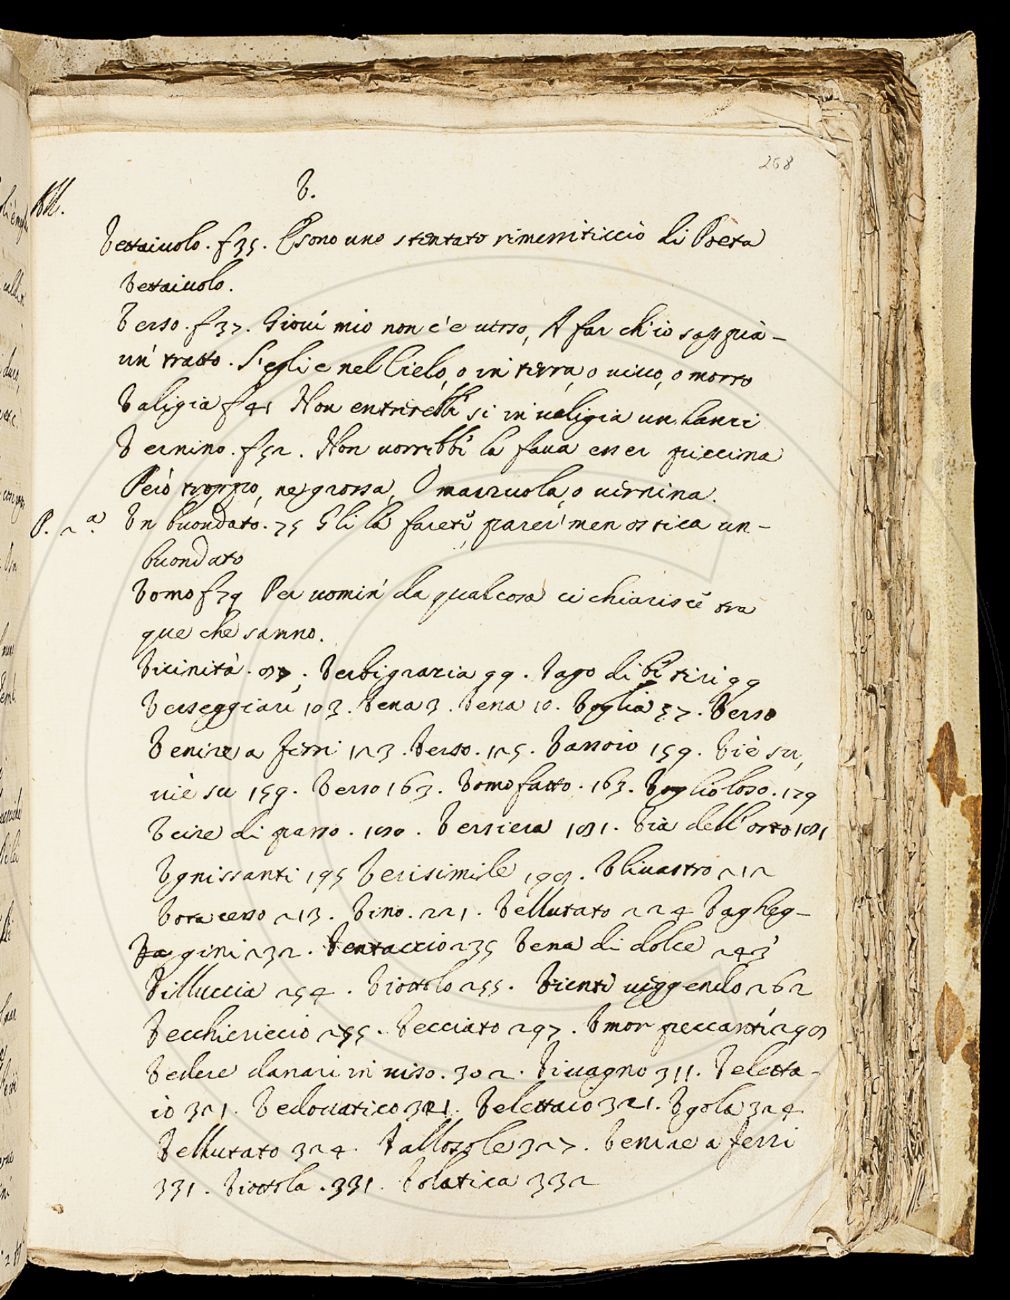 268
V.
Vettaivolo. f 35. E sono uno stentato rimessiticcio di Poeta
Vettaivolo.
Verso. f 37. Giovi mio non c'è verso, A far ch'io sappia
un' tratto. S'egli e nel Cielo, o in terra, o vivo, o morto
Valigia f 41 Non entrirebb' si in valigia un Lanzi
Vernino. f 52. Non vorrebbi la fava esser piccina
Però troppo, ne grossa, O marzuola, o vernina.
P. 2.a Un buondato. 75 Gli la fareti, parer' men ostica un-
buondato
Vomo f 79 Per uomin' da qualcosa ci chiarisci tra
que che sanno.
Vicinità. 87. Verbigrazia 99. Vago di bisticci 99
Verseggiari 103. Vena 3. Vena 10. Voglia 37. Verso
Venire a ferri 123. Verso. 125. Vassoio 159. Viè su,
viè su 159. Verso 163. Vomo fatto. 163. Voglioloso. 179
Veire di passo. 180. Versiera 181. Via dell'orto 181
Vgnissanti 195 Verisimile 198. Vlivastro 212
Vota cesso 213. Vino. 221. Vellutato 224 Vagheg-
gini 232. Ventaccio 235 Vena di dolce 243
Villuccia 254. Viottolo 255. Vienti veggendo 262
Vecchiericcio 295. Vecciato 297. Vmor peccanti 298
Vedere danari in viso. 302. Vivagno 311. Veletta-
io 321. Vedovatico 321. Velettaio 321. Vgola 324
Vellutato 324. Vallozole 327. Venire a ferri
331. Viottola. 331. Volatica 332